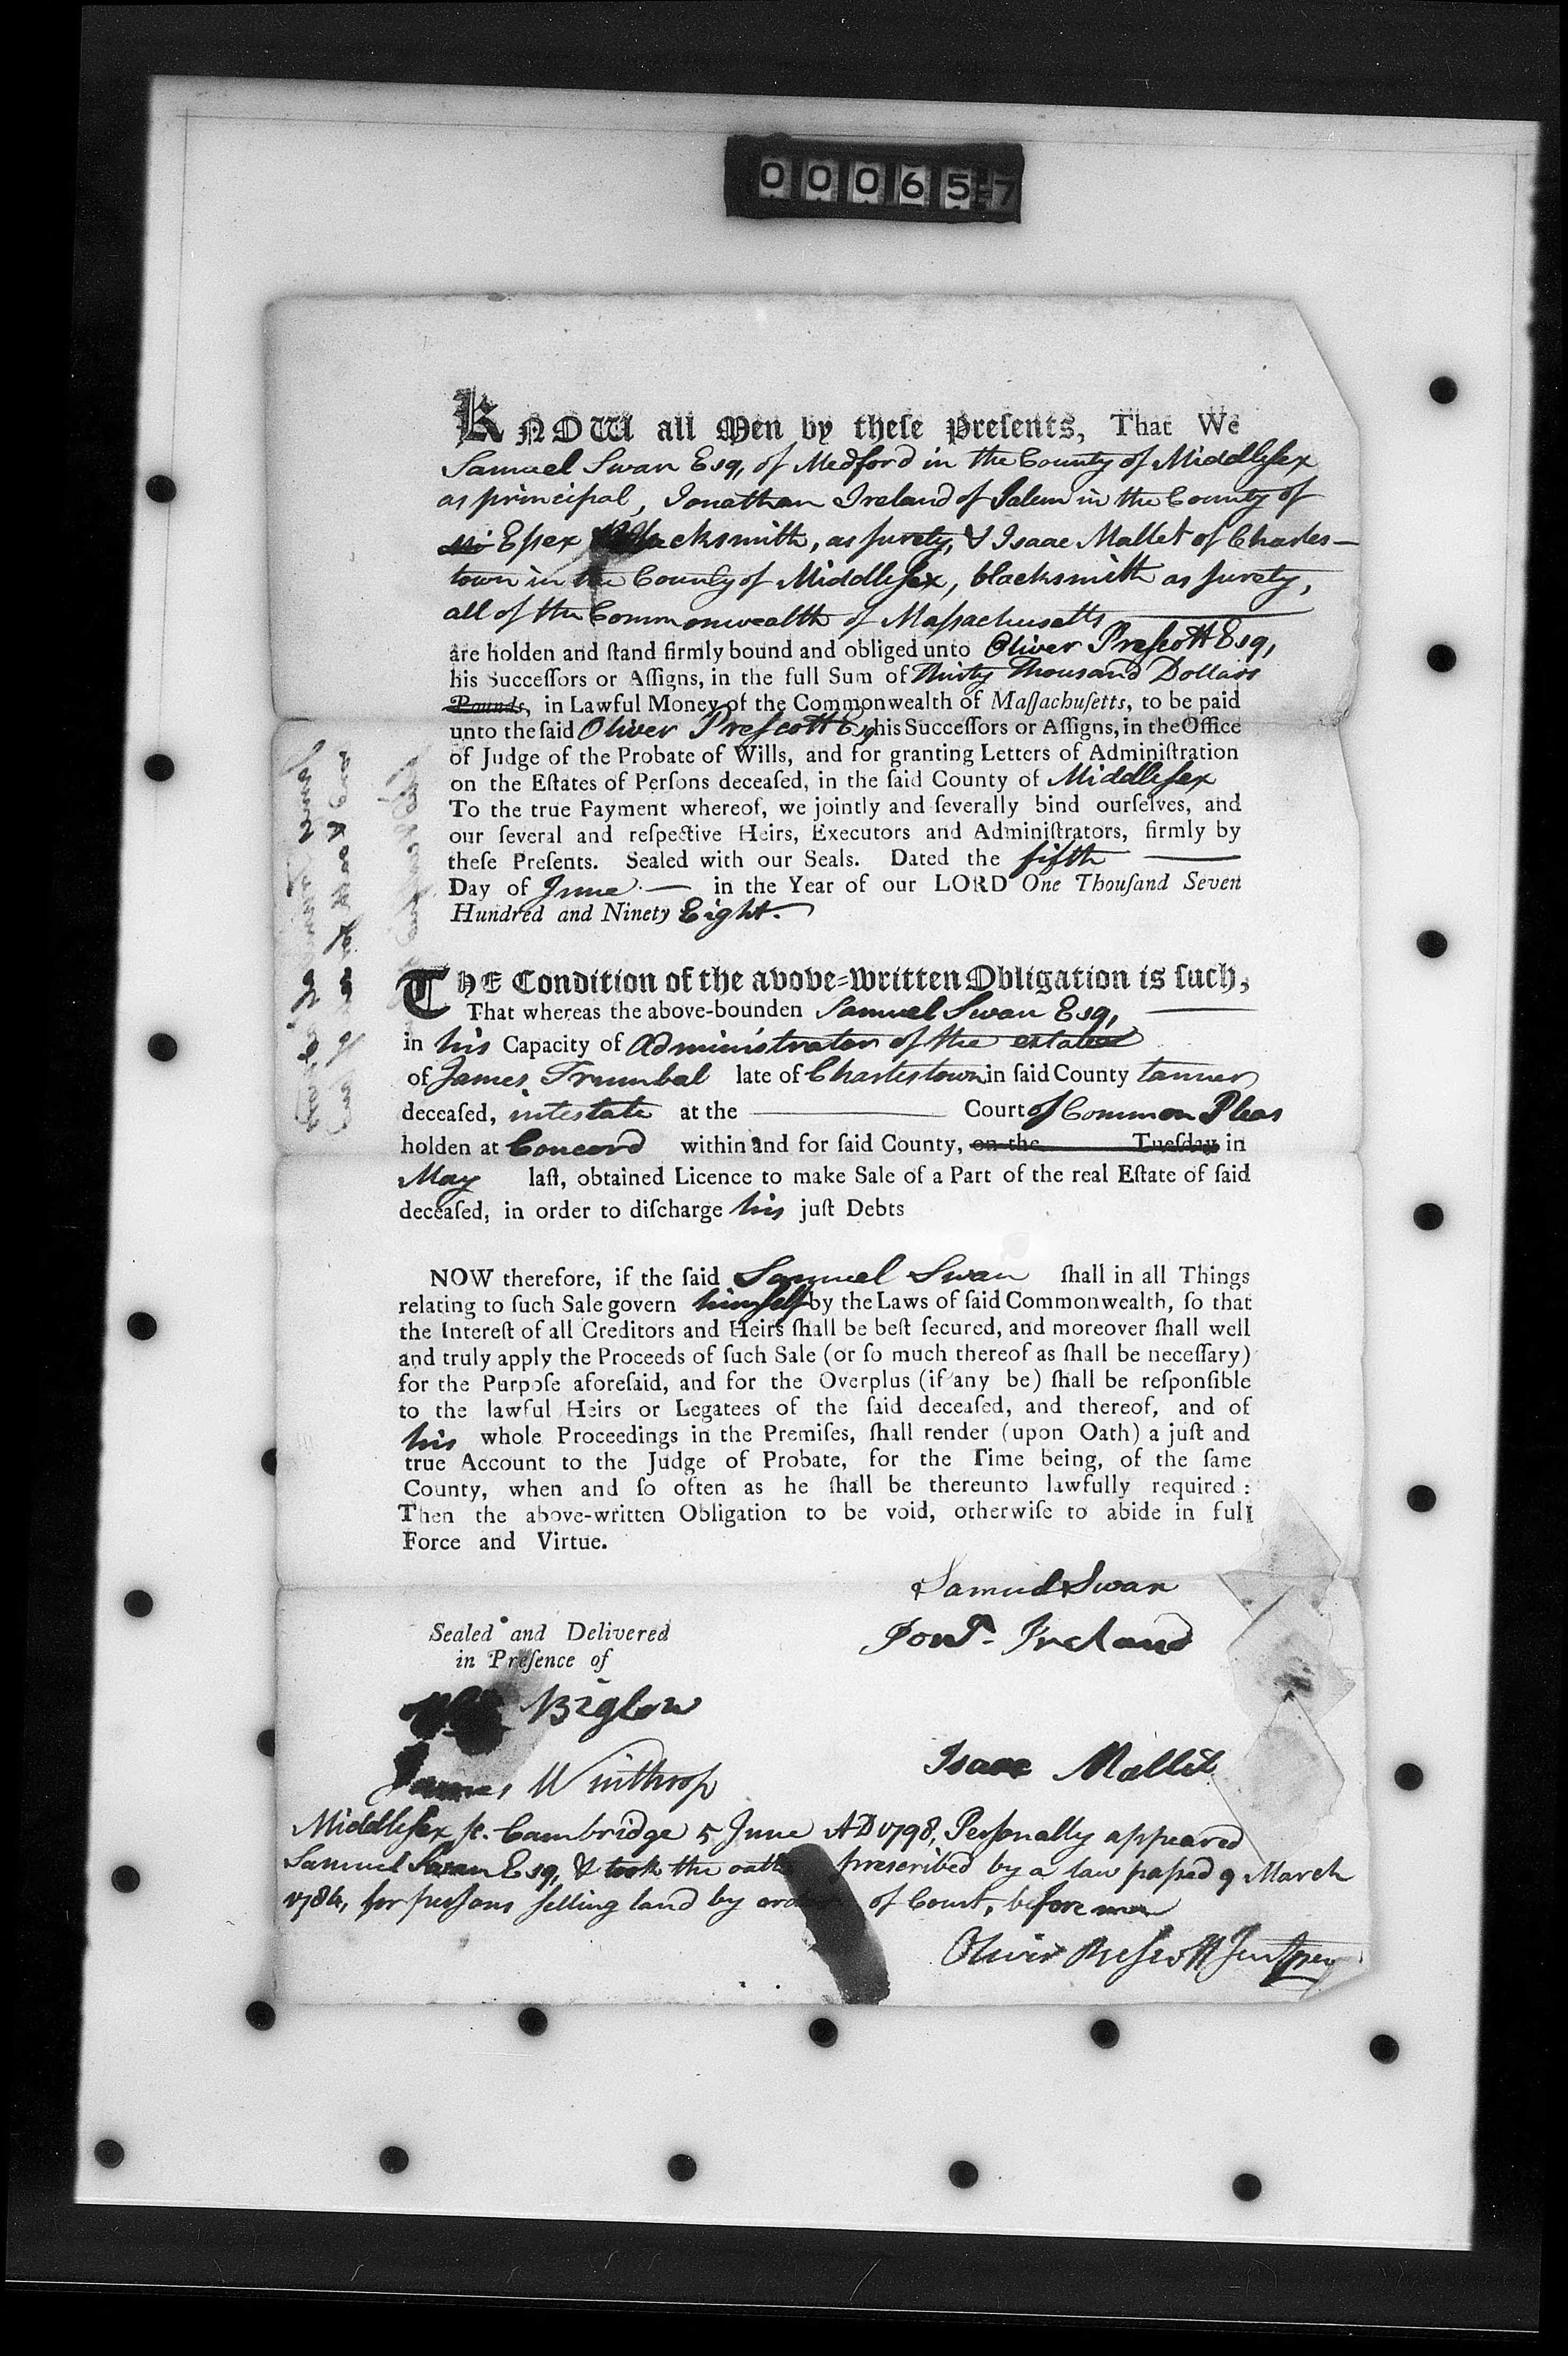 000657
KNOW all Men by theſe Preſents, That We
Samuel Swan Esq, of Medford in the County of Middleſex
as principal, Jonathan Ireland of Salem in the County of
Eſsex blacksmith, as ſurety, & Isaac Mallet of Charles–
town in the County of Middleſex, blacksmith as ſurety,
all of the Commonwealth of Maſsachusetts
are holden and ſtand firmly bound and obliged unto Oliver Preſcott Esq,
his Succeſſors or Aſſigns, in the full Sum of Thirty Thousand Dollars
Pounds, in Lawful Money of the Commonwealth of Maſſachuſetts, to be paid
unto the ſaid Oliver Preſcott Esq, his Succeſſors or Aſſigns, in the Office
of Judge of the Probate of Wills, and for granting Letters of Adminiſtration
on the Eſtates of Perſons deceaſed, in the ſaid County of Middleſex
To the true Payment whereof, we jointly and ſeverally bind ourſelves, and
our ſeveral and reſpective Heirs, Executors and Adminiſtrators, firmly by
theſe Preſents. Sealed with our Seals. Dated the fifth
Day of June in the Year of our LORD One Thouſand Seven
Hundred and Ninety Eight.
THE Condition of the above-written Obligation is ſuch,
That whereas the above-bounden Samuel Swan Esq,
in his Capacity of Administrator of the estate
of James Trumbal late of Charlestown in ſaid County tanner
deceaſed, intestate at the Court of Common Pleas
holden at Concord within and for ſaid County, on the Tueſday in
May laſt, obtained Licence to make Sale of a Part of the real Eſtate of ſaid
deceaſed, in order to diſcharge his juſt Debts
NOW therefore, if the ſaid Samuel Swan ſhall in all Things
relating to ſuch Sale govern himſelf by the Laws of ſaid Commonwealth, ſo that
the Intereſt of all Creditors and Heirs ſhall be beſt ſecured, and moreover ſhall well
and truly apply the Proceeds of ſuch Sale (or ſo much thereof as ſhall be neceſſary)
for the Purpoſe aforeſaid, and for the Overplus (if any be) ſhall be reſponſible
to the lawful Heirs or Legatees of the ſaid deceaſed, and thereof, and of
his whole Proceedings in the Premiſes, ſhall render (upon Oath) a juſt and
true Account to the Judge of Probate, for the Time being, of the ſame
County, when and ſo often as he ſhall be thereunto lawfully required :
Then the above-written Obligation to be void, otherwiſe to abide in full
Force and Virtue.
Samuel Swan
Sealed and Delivered
in Preſence of
Jonª. Ireland
Biglow
Isaac Mallet
James Winthrop
Middleſex ſs. Cambridge 5 June AD 1798, Perſonally appeared
Samuel Swan Esq, & took the oath prescribed by a law paſsed 9 March
1784, for perſons ſelling land by order of Court, before me
Oliver Preſcott